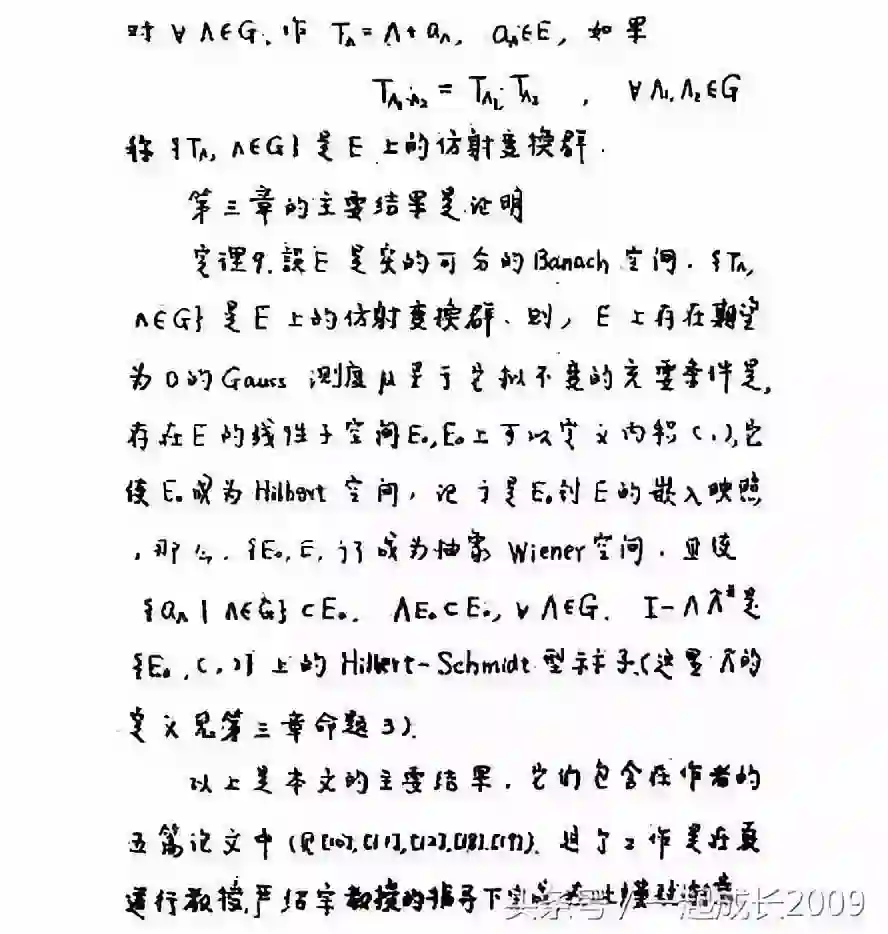 对 ∀ Λ∈G, 作 T_Λ = Λ + a_Λ, a_Λ∈E, 如果
T_{Λ₁·Λ₂} = T_{Λ₁}·T_{Λ₂} , ∀ Λ₁,Λ₂∈G
称 {T_Λ, Λ∈G} 是 E 上的仿射变换群.
第三章的主要结果是证明
定理9. 設 E 是实的可分的 Banach 空间. {T_Λ,
Λ∈G} 是 E 上的仿射变换群, 则, E 上存在期望
为 0 的 Gauss 测度 μ 关于它拟不变的充要条件是,
存在 E 的线性子空间 E₀, E₀ 上可以定义内积 ( , ), 它
使 E₀ 成为 Hilbert 空间, 记 j 是 E₀ 到 E 的嵌入映照
, 那么, {E₀, E, j} 成为抽象 Wiener 空间. 且使
{a_Λ | Λ∈G} ⊂ E₀. ΛE₀ ⊂ E₀, ∀ Λ∈G. I - Λ Λ̃* 是
{E₀, ( , )} 上的 Hilbert-Schmidt 型算子. (这里 Λ̃ 的
定义见第三章命题3).
以上是本文的主要结果, 它们包含在作者的
五篇论文中 (见[10],[11],[12],[18],[19]). 这个工作是在夏
道行教授,严绍宗教授的指导下完成
头条号 / 一起成长2009